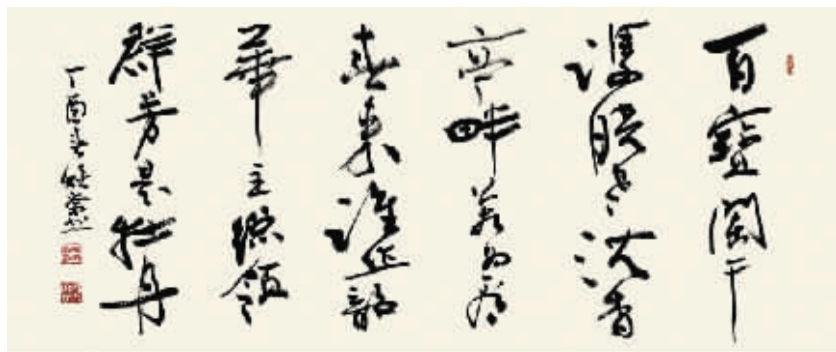 百寶闌干
護曉寒沈香
亭畔若為看
春來誰作韶
華主總領
群芳是牡丹
丁酉春